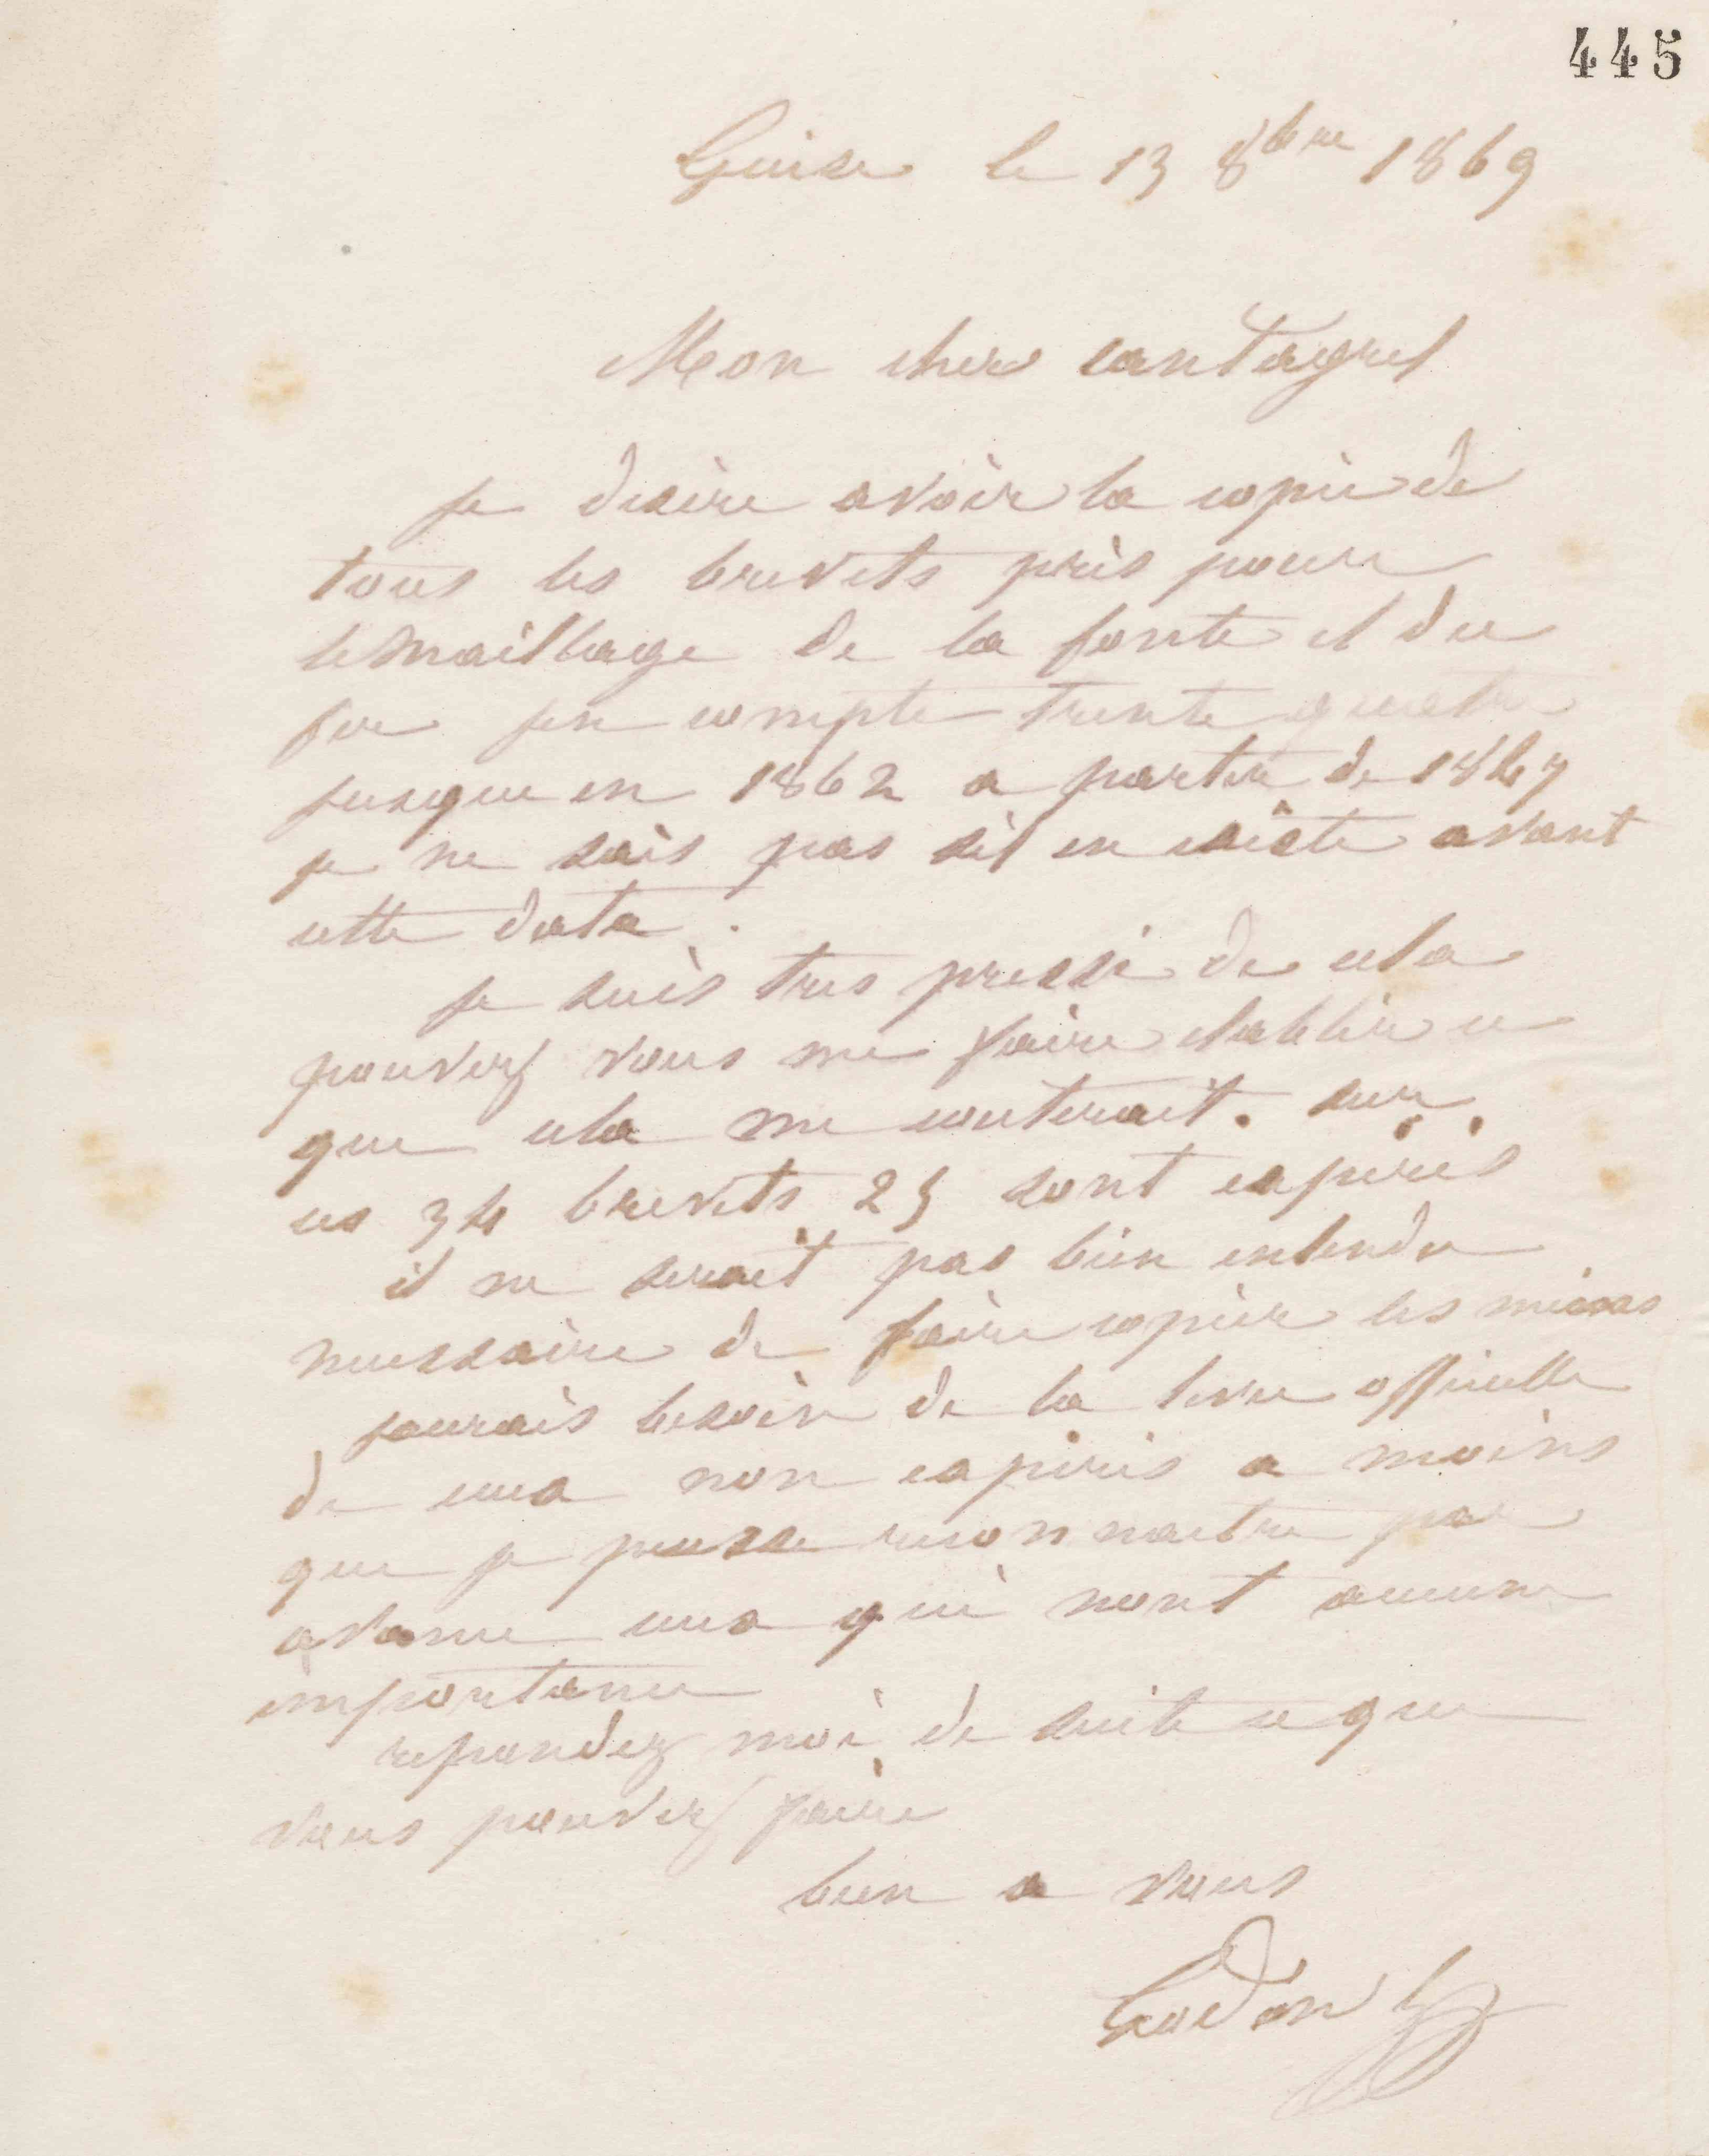 445
Guise le 13 8bre 1869
Mon cher cantagrel
je desire avoir la copie de
tous les brevets pris pour
lemaillage de la fonte et du
fer jen compte trente quatre
jusque en 1862 a partir de 1847
je ne sais pas sil en existe avant
cette date.
je suis tres pressé de cela
pouvez vous me faire etablir ce
que cela me couterait. sur
ces 34 brevets 25 sont expirés
il ne serait pas bien entendu
necessaire de faire copier les
jaurais besoin de la officielle
de ceux non expirés a moins
que je puisse reconnaitre par
avance ceux qui nont aucune
importance
repondez moi de suite ce que
vous pouvez faire
bien a vous
Godin